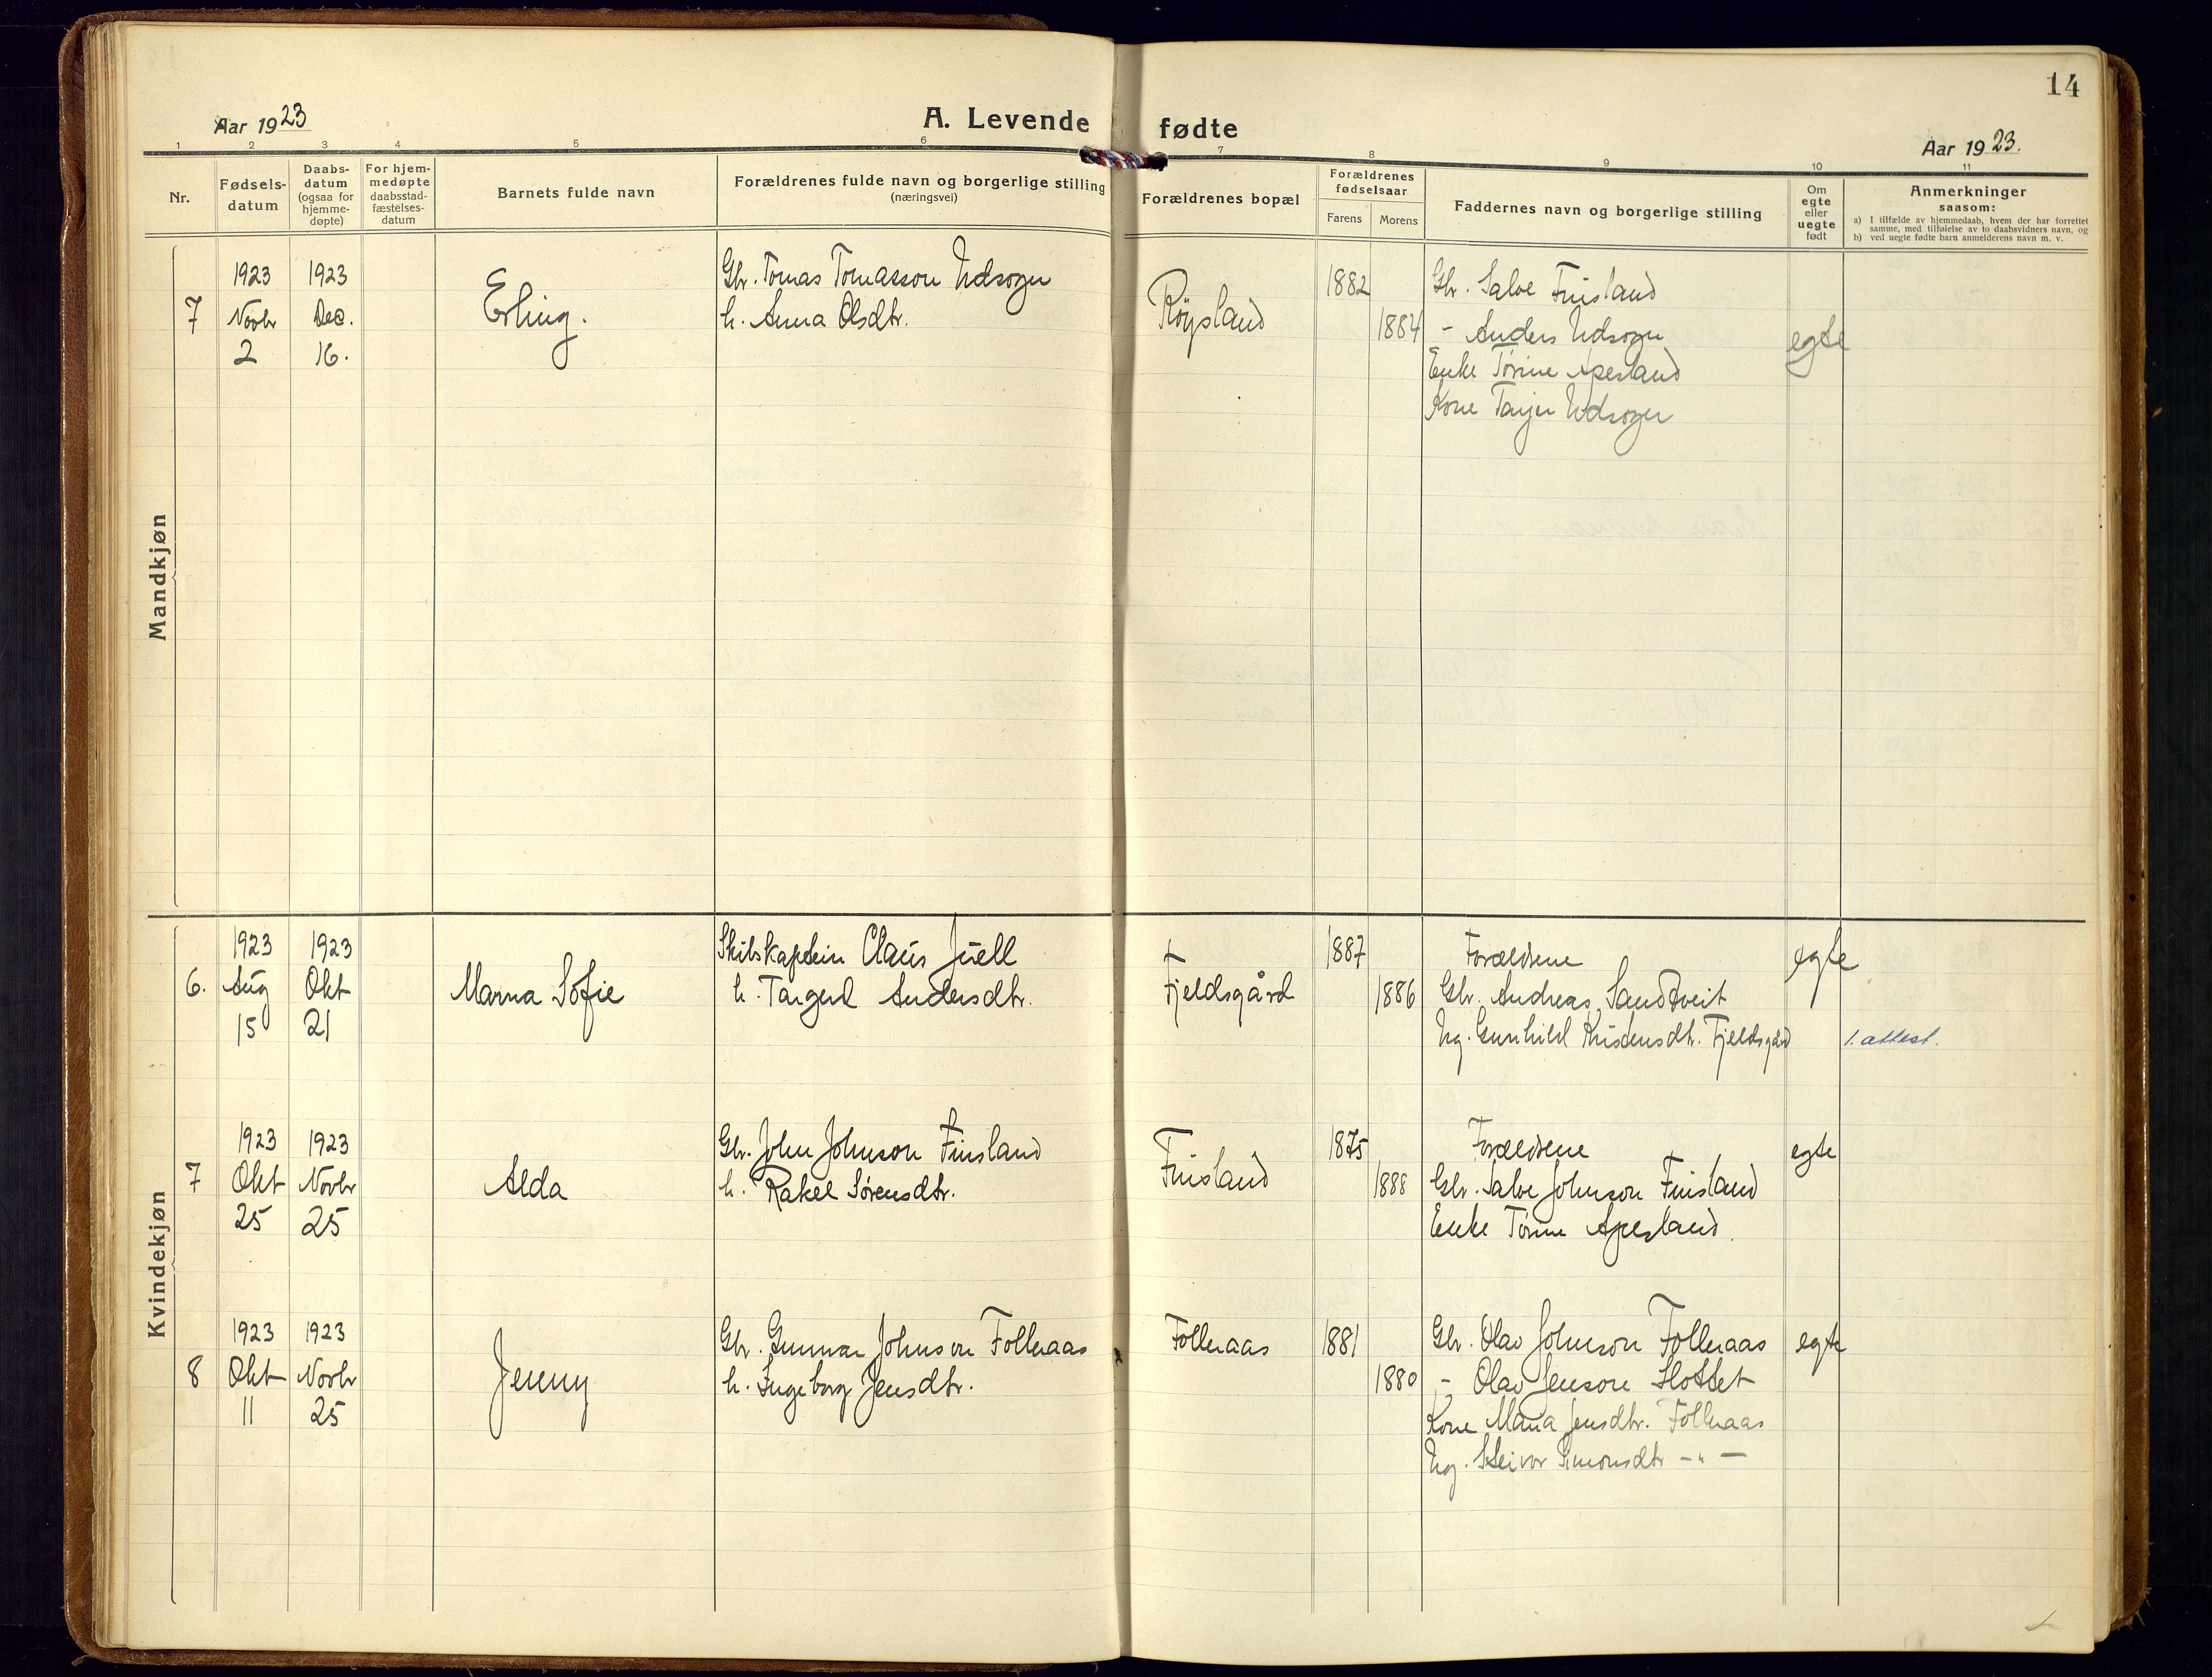 14
Aar 1923
A. Levende fødte
Aar 1923.
1 2 3 4 5 6 7 8 9 10 11
Nr.
Fødsels-
datum
Daabs-
datum
(ogsaa for
hjemme-
døpte)
For hjem-
medøpte
daabsstad-
fæstelses-
datum
Barnets fulde navn
Forældrenes fulde navn og borgerlige stilling
(næringsvei)
Forældrenes bopæl
Forældrenes
fødselsaar
Farens
Morens
Faddernes navn og borgerlige stilling
Om
egte
eller
uegte
født
Anmerkninger
saasom:
a) I tilfælde av hjemmedaab, hvem der har forrettet
samme, med tilføielse av to daabsvidners navn, og
b) ved uegte fødte barn anmelderens navn m. v.
Mandkjøn
7
1923
Novbr
2
1923
Dec.
16.
Erling.
Gbr. Tomas Tomasson Udsogn
h. Anna Olsdtr.
Röysland
1882
1884
Gbr. Salve Finsland
- Anders Udsogn
Enke Tørine Apesland
Kone Tarjer Udsogn
egte
Kvindekjøn
6.
1923
Aug
15
1923
Okt
21
Marna Sofie
Skibskaptein Claus Juell
h. Targerd Andersdtr.
Fjeldsgård
1887
1886
Forældrene
Gbr. Andreas Sandtveit
Ug. Gunhild Kristensdtr. Fjeldsgård
egte
1. attest.
7
1923
Okt
25
1923
Novbr
25
Alda
Gbr. John Johnson Finsland
h. Rakel Sørensdtr.
Finsland
1875
1888
Forældrene
Gbr. Salve Johnson Finsland
Enke Tørine Apesland.
egte
8
1923
Okt
11
1923
Novbr
25
Jenny
Gbr. Gunnar Johnson Folleraas
h. Ingeborg Jensdtr.
Folleraas
1881
1880
Gbr. Olav Johnson Folleraas
- Olav Jenson Slottet
Kone Maria Jensdtr. Folleraas
Ug. Steivor Simonsdtr - " -
egte